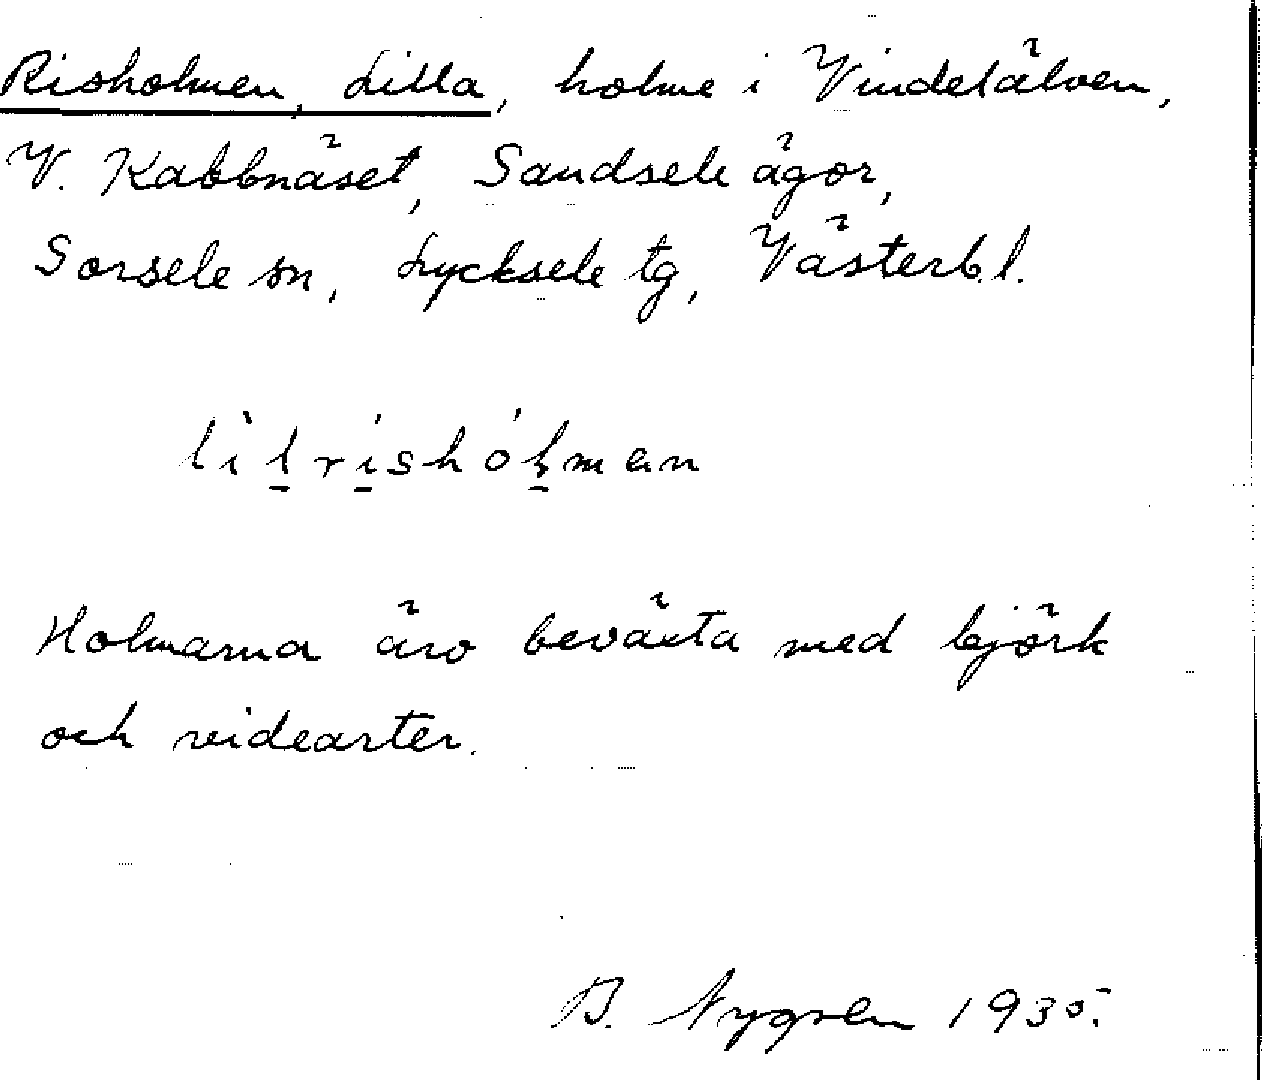 Risholmen, Lilla, holme i Vindelälven,
V. Kabbnäset, Sandsele ägor,
Sorsele sn, Lycksele tg, Västerb. l.
lìl̠rí̠shól̠man
Holmarna äro beväxta med björk
och videarter.
B. Nygren 1935.